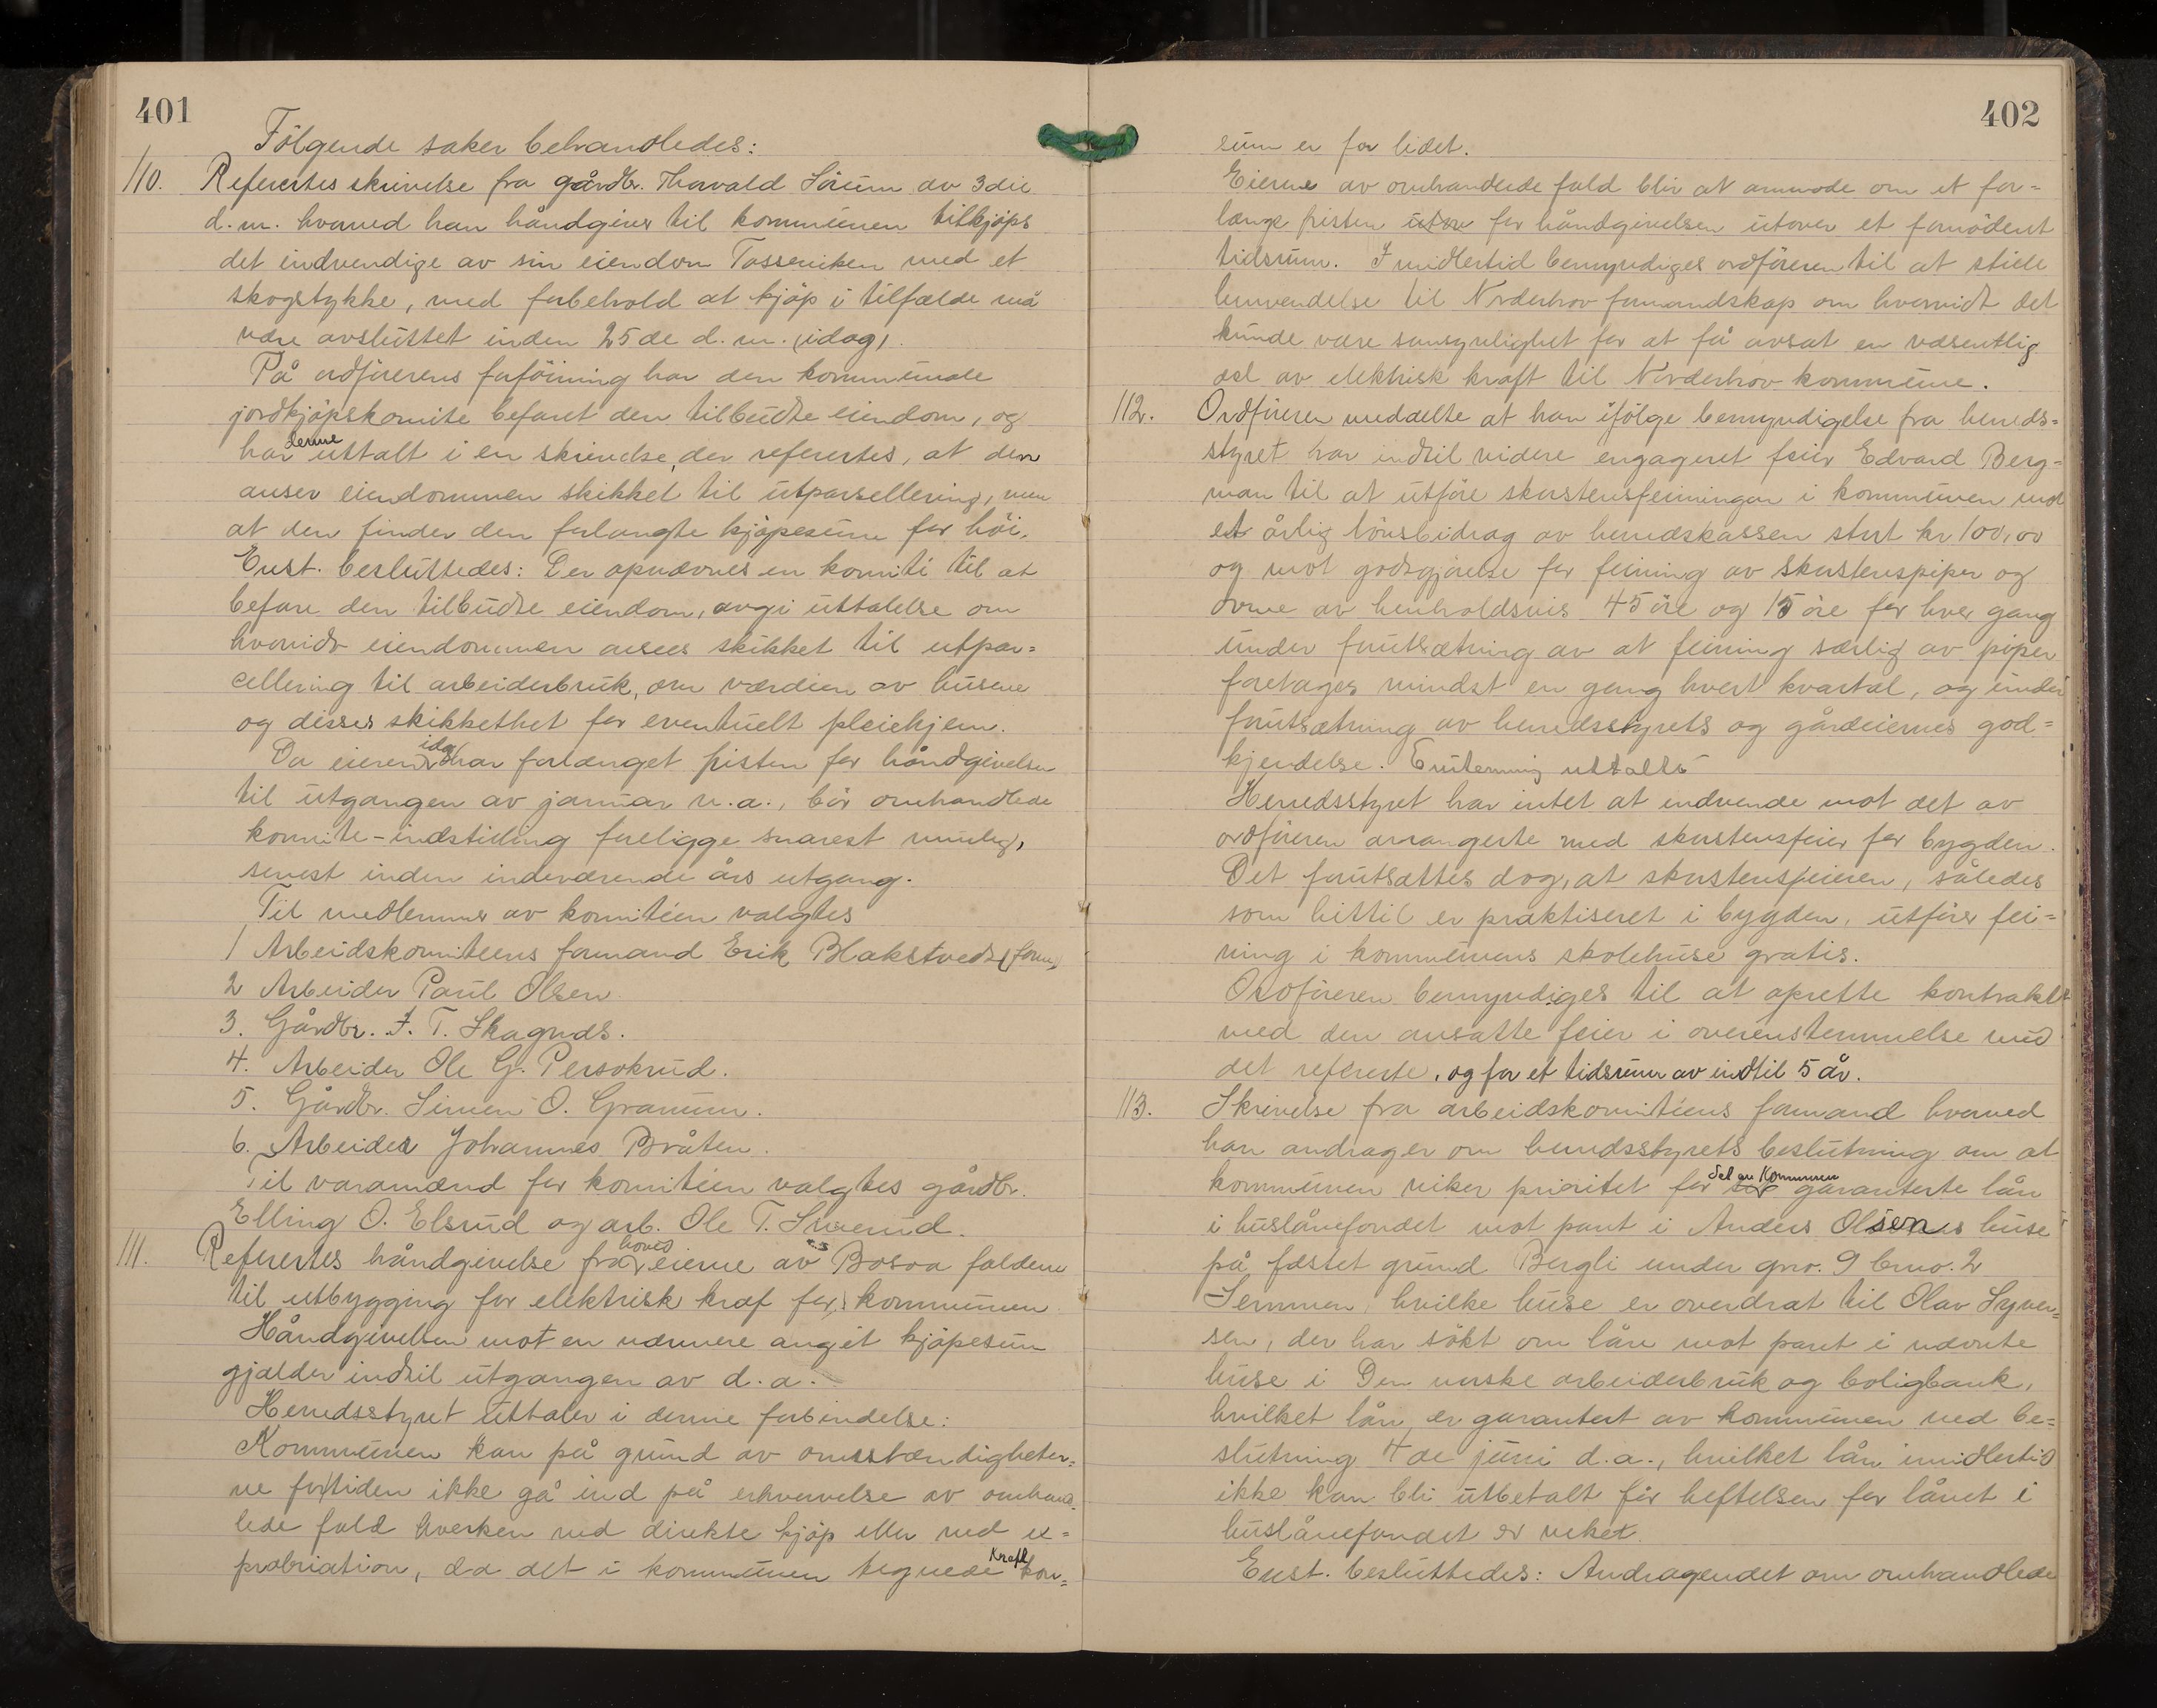 401
Følgende saker behandledes:
110. Refereertes skrivelse fra gårdbr. Thorvald Sörum av 3die
d.m. hvorved han håndgiver til kommunen tilkjöps
det indvendige av sin eiendom med et
skogstykke, med forbehold at kjöp i tilfælde må
være avsluttet inden 25de d.m. (idag).
På ordförerens forföining har den kommunale
jordkjöpskomite befaret den tilbudte eiendom, og
har denne uttalt i en skrivelse, der refertes, at den
anser eiendommen skikket til utparsellering, men
at den finder den forlangte kjöpesum for höi.
Enst. besluttedes: Der opnævnes en komité til at
befare den tilbudte eiendom, avgi uttalelse om
hvorvidt eiendommen ansees skikket til utpar=
cellering til arbeiderbruk, om værdien av husene
og disses skikkethet for eventuelt pleiehjem.
Da eieren idag har forlænget fristen for håndgivelsen
til utgangen av januar n.a., bör omhandlede
komite-indstilling foreligge snarest mulig,
senest inden indeværende års utgang.
Til medlemmer av komitéen valgtes
1 Arbeidskomiteens formand Erik Blakstvedt (form)
2 Arbeider Paul Olsen
3. Gårdbr. T. Skagnds.
4. Arbeider Ole G. Persokrud.
5. Gårdbr. Simen O. Granum.
6. Arbeider Johannes Bråten.
Til varamænd for komitéen valgtes gårdbr.
Elling O. Elsrud og arb. Ole T.
111. Refereertes håndgivelse fra hoved eierne av Bosoa faldene
til utbygging for elektrisk kraf for kommunen
Håndgivelsen mot en nærmere angit kjöpesum
gjælder indtil utgangen av d.a.
Herredsstyret uttaler i denne forbindelse:
Kommunen kan på grund av omstændigheter=
ne for tiden ikke gå ind på erhvervelse av omhand=
lede fald hverken ved direkte kjöp eller ved ex=
probriation, da det i kommunen tegnede Kraft kon=
402
sum er for lidet.
Eierne av omhandlede fald blir at anmode om et for=
længe fristen utov for håndgivelsen utover et fornödent
tidsrum. Imidlertid bemyndiges ordföreren til at stille
henvendelse til Norderhov formandskap om hvorvidt det
kunde være sansynlighet for at få avsat en væsentlig
del av elektrisk kraft til Norderhov kommune.
112. Ordföreren meddelte at han ifölge bemyndigelse fra herreds=
styret har indtil videre engageret feier Edvard Berg=
man til at utföre skorstensfeiningen i kommunen mot
et årlig lönsbidrag av herredskassen stort kr 100,00
og mot godtgjörelse for feining av skorstenspiper og
ovne av henholdsvis 45 öre og 15 öre for hver gang
under forutsætning av at feining særlig av piper
foretages mindst en gang hvert kvartal, og under
forutsætning av herredsstyrets og gårdeiernes god=
kjendelse. Enstemmig uttaltes
Herredsstyret har intet at indvende mot det av
ordföreren arrangerte med skorstensfeier for bygden.
Det forutsættes dog, at skorstensfeieren, således
som hittil er praktiseret i bygden, utförer fei=
ning i kommunens skolehuse gratis.
Ordföreren bemyndiges til at oprette kontrakt
med den ansatte feier i overenstemmelse med
det refererte, og for et tidsrum av indtil 5 år.
113. Skrivelse fra arbeidskomitéens formand hvorved
han andrager om herredsstyrets beslutning om at
kommunen viker prioritet for det av Kommunen garanterte lån
i huslånefondet mot pant i Anders Olsens huse
på fæstet grund Bergli under gno. 9 bno. 2
Semmen, hvilke huse er overdrat til Olav Syver=
sen, der har sökt om lån mot pant i nævnte
huse i Den norske arbeiderbruk og boligbank,
hvilket lån er garantert av kommunen ved be=
slutning 4de juni d.a., hvilket lån imidlertid
ikke kan bli utbetalt för heftelsen for lånet i
huslånefondet er veket.
Enst. besluttedes: Andragendet om omhandlede